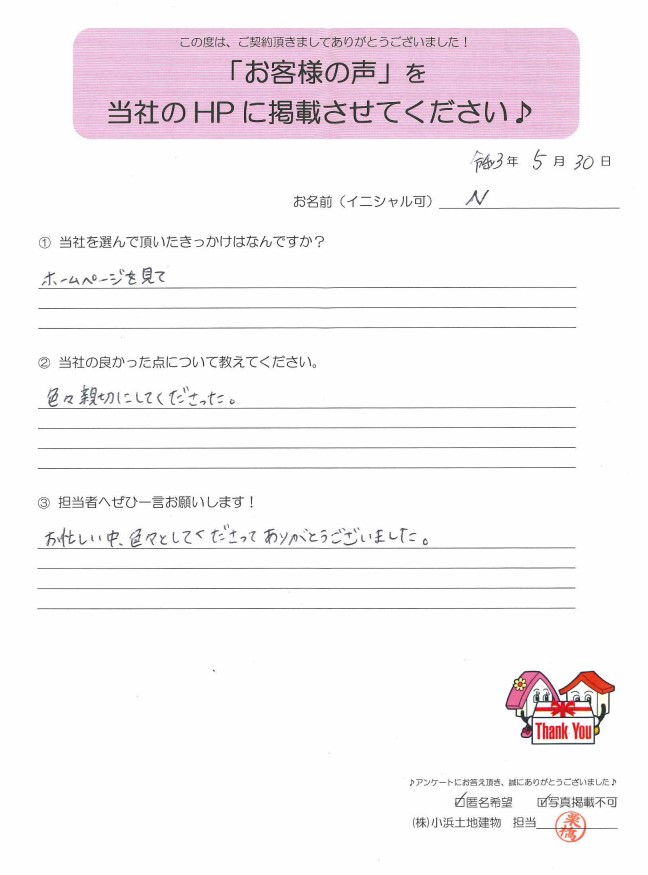 この度は、ご契約頂きましてありがとうございました！
「お客様の声」を
当社のHPに掲載させてください♪
令和3年 5月30日
お名前（イニシャル可） N
① 当社を選んで頂いたきっかけはなんですか？
ホームページを見て
② 当社の良かった点について教えてください。
色々親切にしてくださった。
③ 担当者へぜひ一言お願いします！
お忙しい中、色々としてくださってありがとうございました。
Thank You
♪アンケートにお答え頂き、誠にありがとうございました♪
☑匿名希望 ☑写真掲載不可
(株)小浜土地建物 担当 栗橋